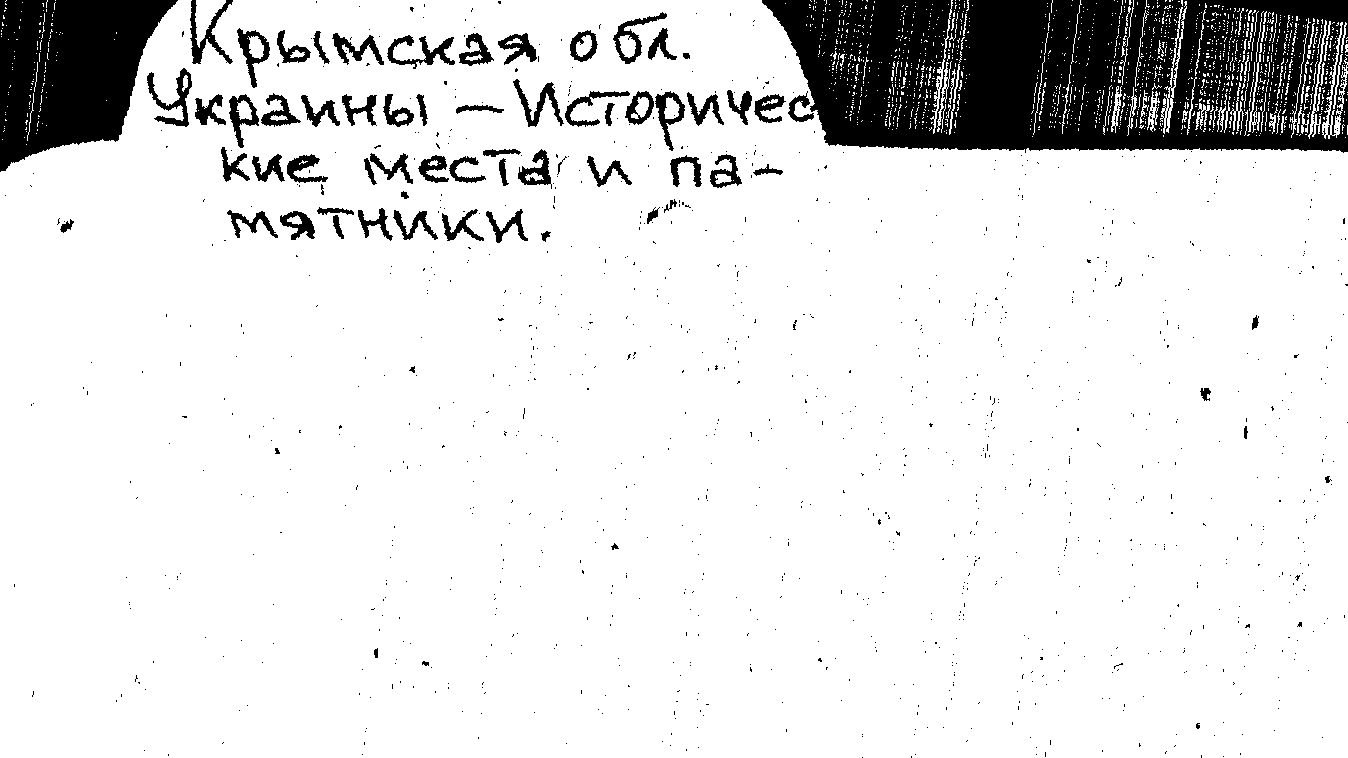 Крымская обл.
Украины — Историчес
кие места и па-
мятники.